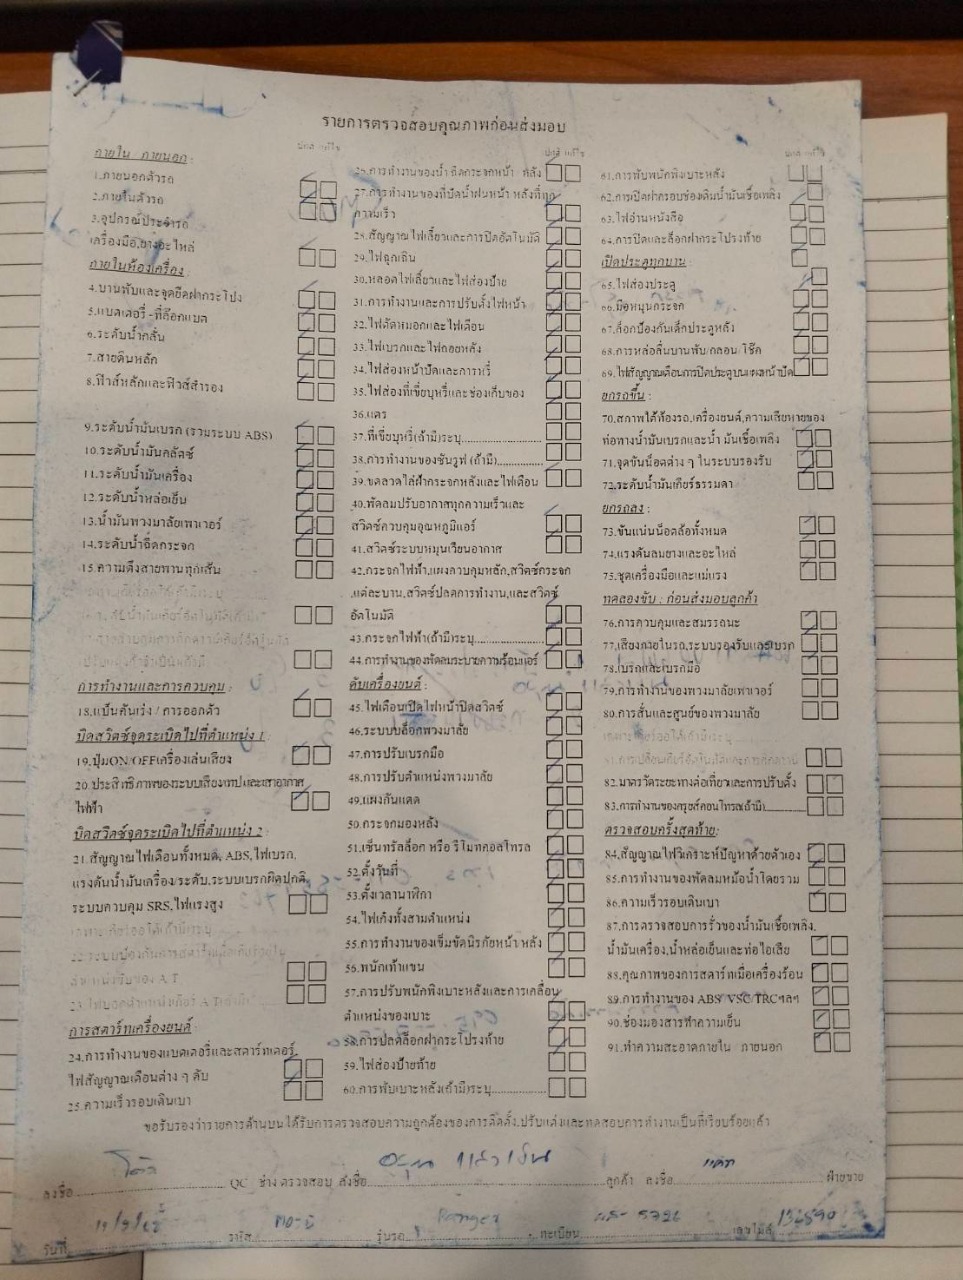 รายการตรวจสอบคุณภาพก่อนส่งมอบ
ปกติ แก้ไข
ภายใน / ภายนอก :
1.ภายนอกตัวรถ
2.ภายในตัวรถ
3.อุปกรณ์ประจำรถ
เครื่องมือ,ยางอะไหล่
ภายในห้องเครื่อง :
4.บานพับและจุดยึดฝากระโปรง
5.แบตเตอรี่ -ที่ล๊อกแบต
6.ระดับน้ำกลั่น
7.สายดินหลัก
8.ฟิวส์หลักและฟิวส์สำรอง
9.ระดับน้ำมันเบรก (รวมระบบ ABS)
10.ระดับน้ำมันคลัตช์
11.ระดับน้ำมันเครื่อง
12.ระดับน้ำหล่อเย็น
13.น้ำมันพวงมาลัยเพาเวอร์
14.ระดับน้ำฉีดกระจก
15.ความตึงสายพานทุกเส้น
การทำงานและการควบคุม :
18.แป้นคันเร่ง / การออกตัว
บิดสวิตซ์จุดระเบิดไปที่ตำแหน่ง 1 :
19.ปุ่มON/OFFเครื่องเล่นเสียง
20.ประสิทธิภาพของระบบเสียงเทปและเสาอากาศ
ไฟฟ้า
บิดสวิตซ์จุดระเบิดไปที่ตำแหน่ง 2 :
21.สัญญาณไฟเตือนทั้งหมด, ABS,ไฟเบรก,
แรงดันน้ำมันเครื่อง/ระดับ,ระบบเบรกผิดปกติ,
ระบบควบคุม SRS,ไฟแรงสูง
การสตาร์ทเครื่องยนต์ :
24.การทำงานของแบตเตอรี่และสตาร์ทเตอร์,
ไฟสัญญาณเตือนต่าง ๆ ดับ
25.ความเร็วรอบเดินเบา
ปกติ แก้ไข
26.การทำงานของน้ำฉีดกระจกหน้า / หลัง
27.การทำงานของที่ปัดน้ำฝนหน้า หลังที่ทุก
ความเร็ว
28.สัญญาณไฟเลี้ยวและการปิดอัตโนมัติ
29.ไฟฉุกเฉิน
30.หลอดไฟเลี้ยวและไฟส่องป้าย
31.การทำงานและการปรับตั้งไฟหน้า
32.ไฟตัดหมอกและไฟเตือน
33.ไฟเบรกและไฟถอยหลัง
34.ไฟส่องหน้าปัดและการหรี่
35.ไฟส่องที่เขี่ยบุหรี่และช่องเก็บของ
36.แตร
37.ที่เขี่ยบุหรี่(ถ้ามี)ระบุ
38.การทำงานของซันรูฟ (ถ้ามี)
39.ขดลวดไล่ฝ้ากระจกหลังและไฟเตือน
40.พัดลมปรับอากาศทุกความเร็วและ
สวิตช์ควบคุมอุณหภูมิแอร์
41.สวิตช์ระบบหมุนเวียนอากาศ
42.กระจกไฟฟ้า,แผงควบคุมหลัก,สวิตช์กระจก
,แต่ละบาน,สวิตช์ปลดการทำงาน,และสวิตช์
อัตโนมัติ
43.กระจกไฟฟ้า(ถ้ามี)ระบุ
44.การทำงานของพัดลมระบายความร้อนแอร์
ดับเครื่องยนต์ :
45.ไฟเตือนเปิดไฟหน้าปิดสวิตช์
46.ระบบบล็อกพวงมาลัย
47.การปรับเบรกมือ
48.การปรับตำแหน่งพวงมาลัย
49.แผงกันแดด
50.กระจกมองหลัง
51.เซ็นทรัลล็อก หรือ รีโมทคอลโทรล
52.ตั้งวันที่
53.ตั้งเวลานาฬิกา
54.ไฟเก๋งทั้งสามตำแหน่ง
55.การทำงานของเข็มขัดนิรภัยหน้า หลัง
56.พนักเท้าแขน
57.การปรับพนักพิงเบาะหลังและการเคลื่อน
ตำแหน่งของเบาะ
58.การปลดล็อกฝากระโปรงท้าย
59.ไฟส่องป้ายท้าย
60.การพับเบาะหลัง(ถ้ามี)ระบุ
ปกติ แก้ไข
61.การพับพนักพิงเบาะหลัง
62.การเปิดฝาครอบช่องเติมน้ำมันเชื้อเพลิง
63.ไฟอ่านหนังสือ
64.การปิดและล็อกฝากระโปรงท้าย
เปิดประตูทุกบาน :
65.ไฟส่องประตู
66.มือหมุนกระจก
67.ล็อกป้องกันเด็กประตูหลัง
68.การหล่อลื่นบานพับ/กลอน/ โช๊ค
69.ไฟสัญญาณเตือนการปิดประตูบนแผงหน้าปัด
ยกรถขึ้น :
70.สภาพใต้ท้องรถ,เครื่องยนต์,ความเสียหายของ
ท่อทางน้ำมันเบรกและน้ำ มันเชื้อเพลิง
71.จุดขันน็อตต่าง ๆ ในระบบรองรับ
72.ระดับน้ำมันเกียร์ธรรมดา
ยกรถลง :
73.ขันแน่นน็อตล้อทั้งหมด
74.แรงดันลมยางและอะไหล่
75.ชุดเครื่องมือและแม่แรง
ทดลองขับ : ก่อนส่งมอบลูกค้า
76.การควบคุมและสมรรถนะ
77.เสียงภายในรถ,ระบบรองรับและเบรก
78.เบรกและเบรกมือ
79.การทำงานของพวงมาลัยเพาเวอร์
80.การสั่นและศูนย์ของพวงมาลัย
82.มาตรวัดระยะทางต่อเที่ยวและการปรับตั้ง
83.การทำงานของครุยส์คอนโทรล(ถ้ามี)
ตรวจสอบครั้งสุดท้าย:
84.สัญญาณไฟวิเคราะห์ปัญหาด้วยตัวเอง
85.การทำงานของพัดลมหม้อน้ำโดยรวม
86.ความเร็วรอบเดินเบา
87.การตรวจสอบการรั่วของน้ำมันเชื้อเพลิง,
น้ำมันเครื่อง,น้ำหล่อเย็นและท่อไอเสีย
88.คุณภาพของการสตาร์ทเมื่อเครื่องร้อน
89.การทำงานของ ABS/ VSC/TRCฯลฯ
90.ช่องมองสารทำความเย็น
91.ทำความสะอาดภายใน / ภายนอก
ขอรับรองว่ารายการด้านบนได้รับการตรวจสอบความถูกต้องของการติดตั้ง,ปรับแต่งและทดสอบการทำงานเป็นที่เรียบร้อยแล้ว
ลงชื่อ QC / ช่างตรวจสอบ ลงชื่อ ลูกค้า ลงชื่อ ฝ่ายขาย
วันที่ รหัส รุ่นรถ Ranger ทะเบียน 5726 เลขไมล์ 132890